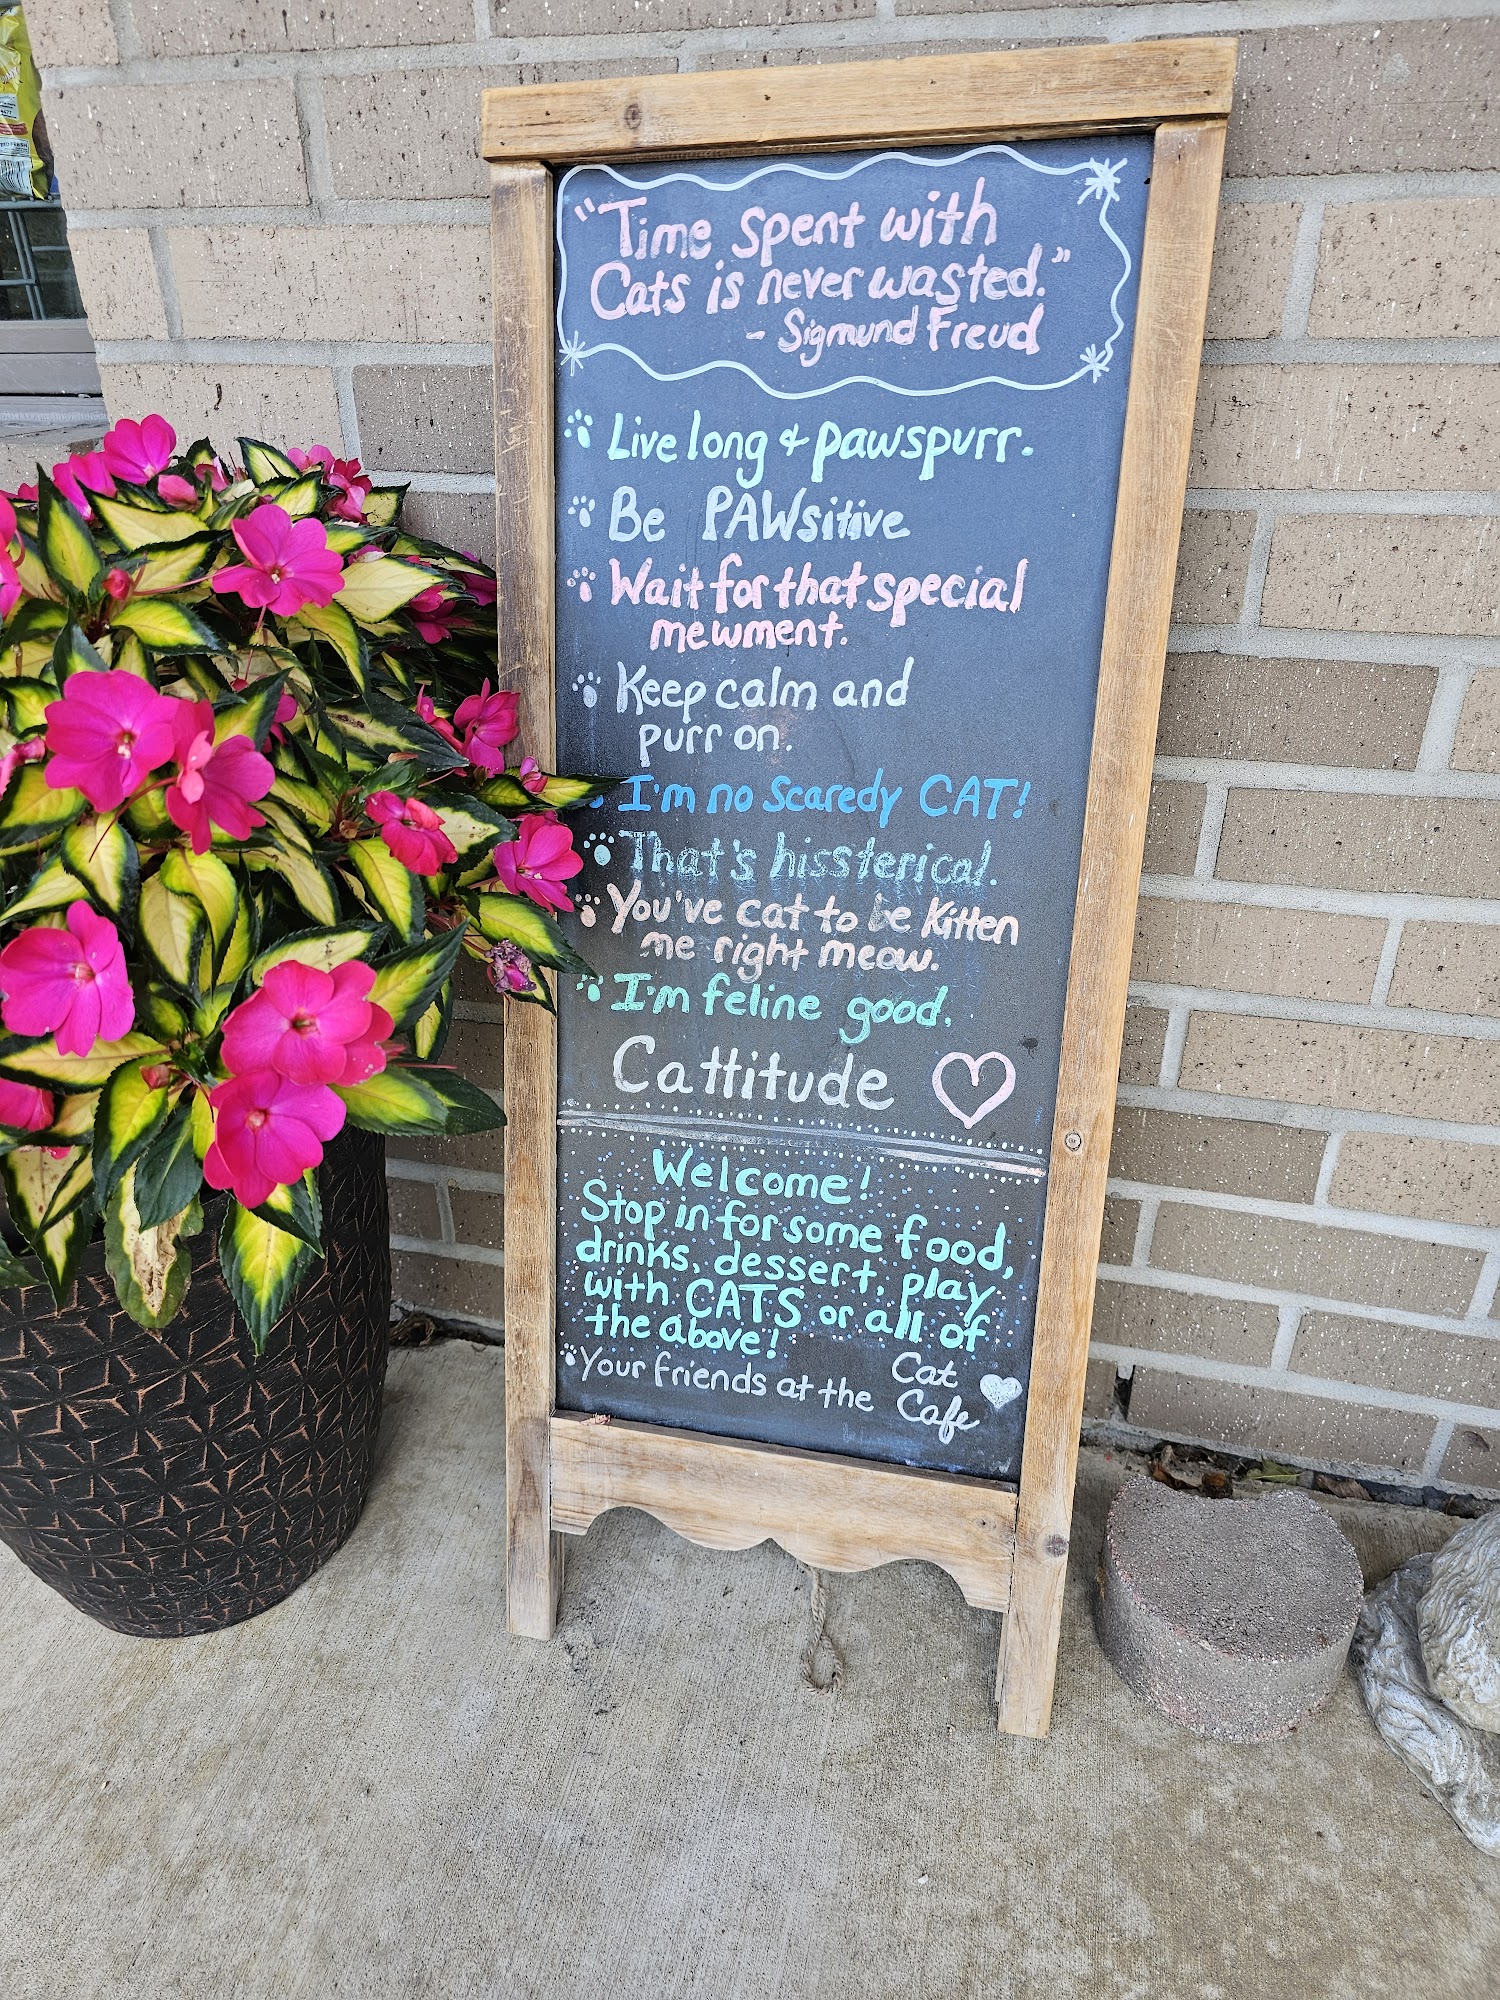 "Time spent with
Cats is never wasted."
- Sigmund Freud
Live long & pawspurr.
Be PAWsitive
Wait for that special
mewment.
Keep calm and
purr on.
I'm no Scaredy CAT!
That's hissterical.
You've cat to be Kitten
me right meow.
I'm feline good.
Cattitude
Welcome!
Stop in for some food,
drinks, dessert, play
with CATS or all of
the above!
Your friends at the Cat
Cafe